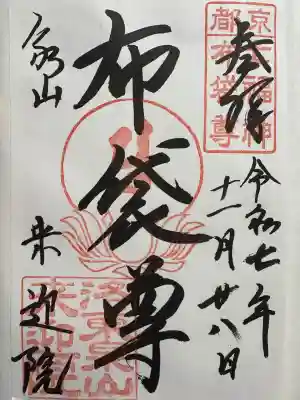 奉拝
令和七年
十一月廿八日
布袋尊
泉山
来迎院
京都
七福神
布袋尊